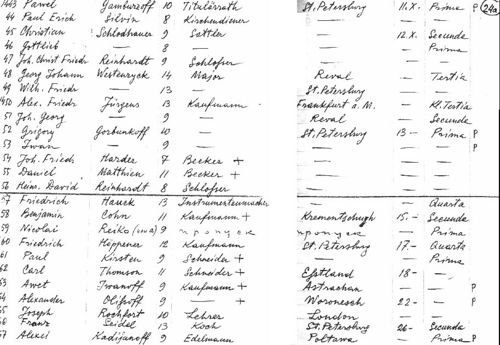 1443 Pawel Gamburzoff 10 Titulärrath St. Petersburg 11.X. Prima P 24a
44 Paul Erich Silvin 8 Kirchendiener — — —
45 Christian Schlodhauer 9 Sattler — 12.X. Secunda
46 Gottlieb — 8 — — — Prima
47 Joh. Christ Friedr Reinhardt 9 Schlosser — — —
48 Georg Johann Westenryck 14 Major Reval — Tertia
49 Wilh. Friedr — 13 — St. Petersburg — —
1450 Alex. Friedr Jürgens 13 Kaufmann Frankfurt a. M. — Kl. Tertia
51 Joh. Georg — 9 — Reval — Secunda
52 Grigory Gorbunkoff 10 — St. Petersburg 13 — Prima P
53 Iwan — 9 — — — — P
54 Joh. Friedr Harder 7 Becker + — — —
55 Daniel Matthien 11 Becker + — — —
56 Heinr. David Reinhardt 8 Schlosser — — —
57 Friedrich Hauck 13 — — Quarta
58 Benjamin Cohn 11 Kaufmann + Krementschugh 15. — Secunda
59 Nicolai Reiko 9 пропуск пропуск — Prima
60 Friedrich Höppener 12 Kaufmann St. Petersburg 17 — Quarta
61 Paul Kirsten 9 Schneider + — — Prima
62 Carl Thomson 11 Schneider + Efstland 18 — —
63 Awet Iwanoff 9 Kaufmann + Astrachan — — P
64 Alexander Olifsoff 9 — + Woronesch 22 — — P
65 Joseph Rochfort 10 Lehrer London — —
66 Franz Seidel 13 Koch St. Petersburg 26 — Secunda
67 Alexei Kadijanoff 9 Edelmann Poltawa — Prima P